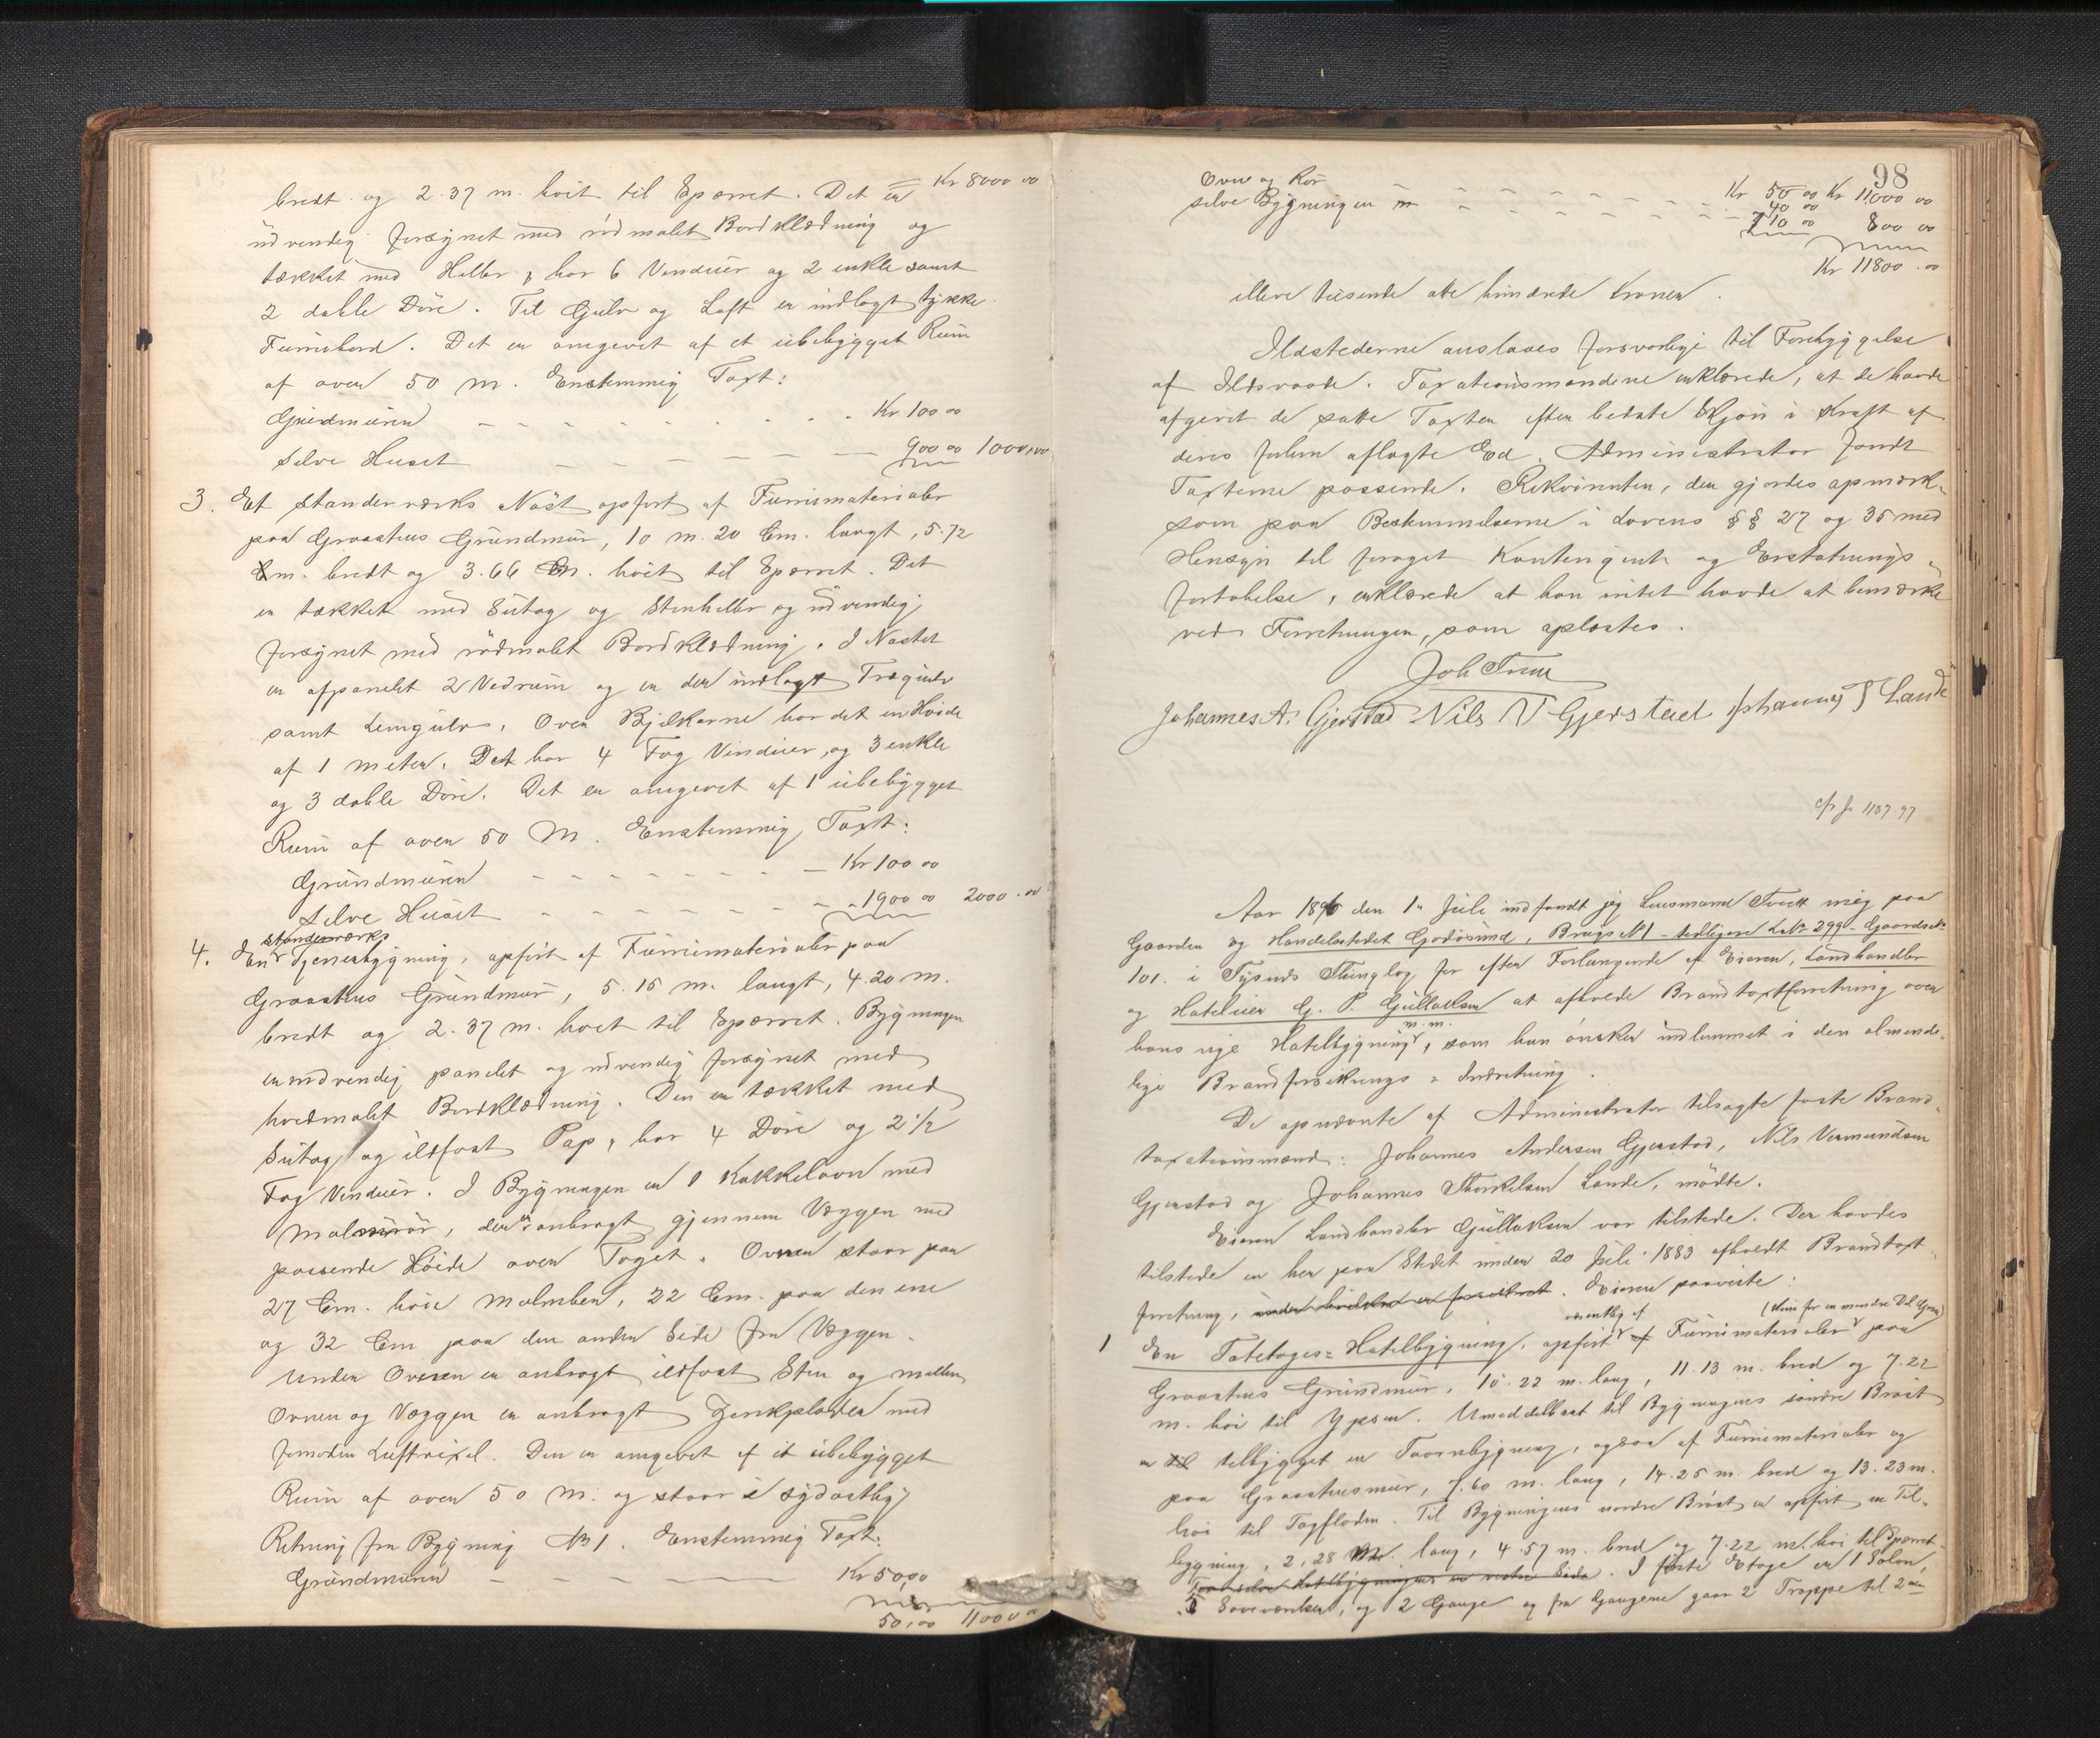 Kr 8000 00
bredt og 2.37 m. høit til Sparret. Det er
udvendig forsynet med rødmalet Bordklædning og
tækket med Heller, har 6 Vinduer og 2 enkle samt
2 doble Døre. Til Gulv og Loft er indlagt tykke
Furubord. Det er omgivet af et ubebygget Rum
af over 50 m. Enstemmig Taxt:
Grundmuren - - - - Kr 100 00
Selve Huset - - - - 900 00 1000,00
3. Et standerværks Nøst opført af Furumaterialer
paa Graastens Grundmur, 10 m. 20 Cm. langt, 5.72
m. bredt og 3.66 m. høit til Sparret. Det
er tækket med Sutag og Stenheller og udvendig
forsynet med rødmalet Bordklædning. I Nøstet
er afpanelet 2 Vedrum og er der indlagt Trægulv
samt Lemgulv. Over Bjelkerne har det en Høide
af 1 meter. Det har 4 Fag Vinduer, og 3 enkle
og 3 doble Døre. Det er omgivet af 1 ubebygget
Rum af over 50 M. Enstemmig Taxt:
Grundmuren - - - - Kr 100 00
Selve Huset - - - - 1900 00 2000.00
standerværks
4. En Tjenerbygning, opført af Furumaterialer paa
Graastens Grundmur, 5.15 m. langt, 4.20 m.
bredt og 2.37 m. høit til Sparret. Bygningen
er indvendig panelet og udvendig forsynet med
hvidmalet Bordklædning. Den er tækket med
Sutag og ildfast Pap, har 4 Døre og 2 1/2
Fag Vinduer. I Bygningen er 1 Kakkelovn med
Malmrør, der er anbragt gjennem Væggen med
passende Høide over Taget. Ovnen staar paa
27 Cm. høie Malmben, 22 Cm. paa den ene
og 32 Cm paa den anden Side fra Væggen.
Under Ovnen er anbragt ildfast Sten og mellem
Ovnen og Væggen er anbragt Zinkplader med
fornøden Luftvexel. Den er omgivet af et ubebygget
Rum af over 50 M. og staar i sydøstlig
Retning fra Bygning No 1. Enstemmig Taxt:
Grundmuren - - - - Kr 50,00
50,00 11000 00
98
Ovne og Rør - - - - Kr 50 00 Kr 11000 00
40 00
selve Bygningen - - - - 710 00 800 00
Kr 11800.00
elleve tusende otte hundrede Kroner.
Ildstederne ansloges forsvarlige til Forebyggelse
af Ildsvaade. Taxationsmændene erklærede, at de havde
afgivet de satte Taxter efter bedste Skjøn i Kraft af
deres forhen aflagte Ed. Administrator fandt
Taxterne passende. Rekvirenten, der gjordes opmærk-
som paa Bestemmelserne i Lovens §§ 27 og 35 med
Hensyn til forøget Kontingent og Erstatnings-
fortabelse, erklærede at han intet havde at bemærke
ved Forretningen, som oplæstes.
Joh Tveit
Johannes A. Gjerstad Nils V Gjerstad Johannes T Lande
1137.97
Aar 1896 den 1ste Juli indfandt jeg Lensmand Tveit mig paa
Gaarden og Handelsstedet Godøsund, Brugs No 1 - tidligere L.No 299 - Gaardsn.
101. i Tysnes Thinglag for efter Forlangende af Eieren, Landhandler
og Hotelier G. P. Gullaksen at afholde Brandtaxtforretning over
m.m.
hans nye Hotelbygning, som han ønsker indlemmet i den alminde-
lige Brandforsikrings-Indretning.
De opnævnte af Administrator tilsagte faste Brand-
taxationsmænd: Johannes Andersen Gjerstad, Nils Vermundsen
Gjerstad og Johannes Thorkelsen Lande, mødte.
Eieren Landhandler Gullaksen var tilstede. Der havdes
tilstede en her paa Stedet under 20 Juli 1883 afholdt Brandtaxt-
forretning, . Eieren paaviste:
væsentlig af (kun for en mindre Del Gran)
1 En Toetages-Hotelbygning. opført af Furumaterialer paa
Graastens Grundmur, 15.22 m. lang, 11.13 m. bred og 7.22
m. høi til Ypsen. Umiddelbart til Bygningens søndre Brøst
er tilbygget en Taarnbygning, ogsaa af Furumaterialer og
paa Graastensmur, 7.60 m. lang, 14.25 m. bred og 13.23 m.
høi til Tagfladen. Til Bygningens nordre Brøst er opført en Til-
bygning, 2,28 m. lang, 4.57 m. bred og 7.22 m. høi til Sparret.
I første Etage er 1 Salon,
Soveværelser, og 2 Gange og fra Gangene gaar 2 Trappe til 2den